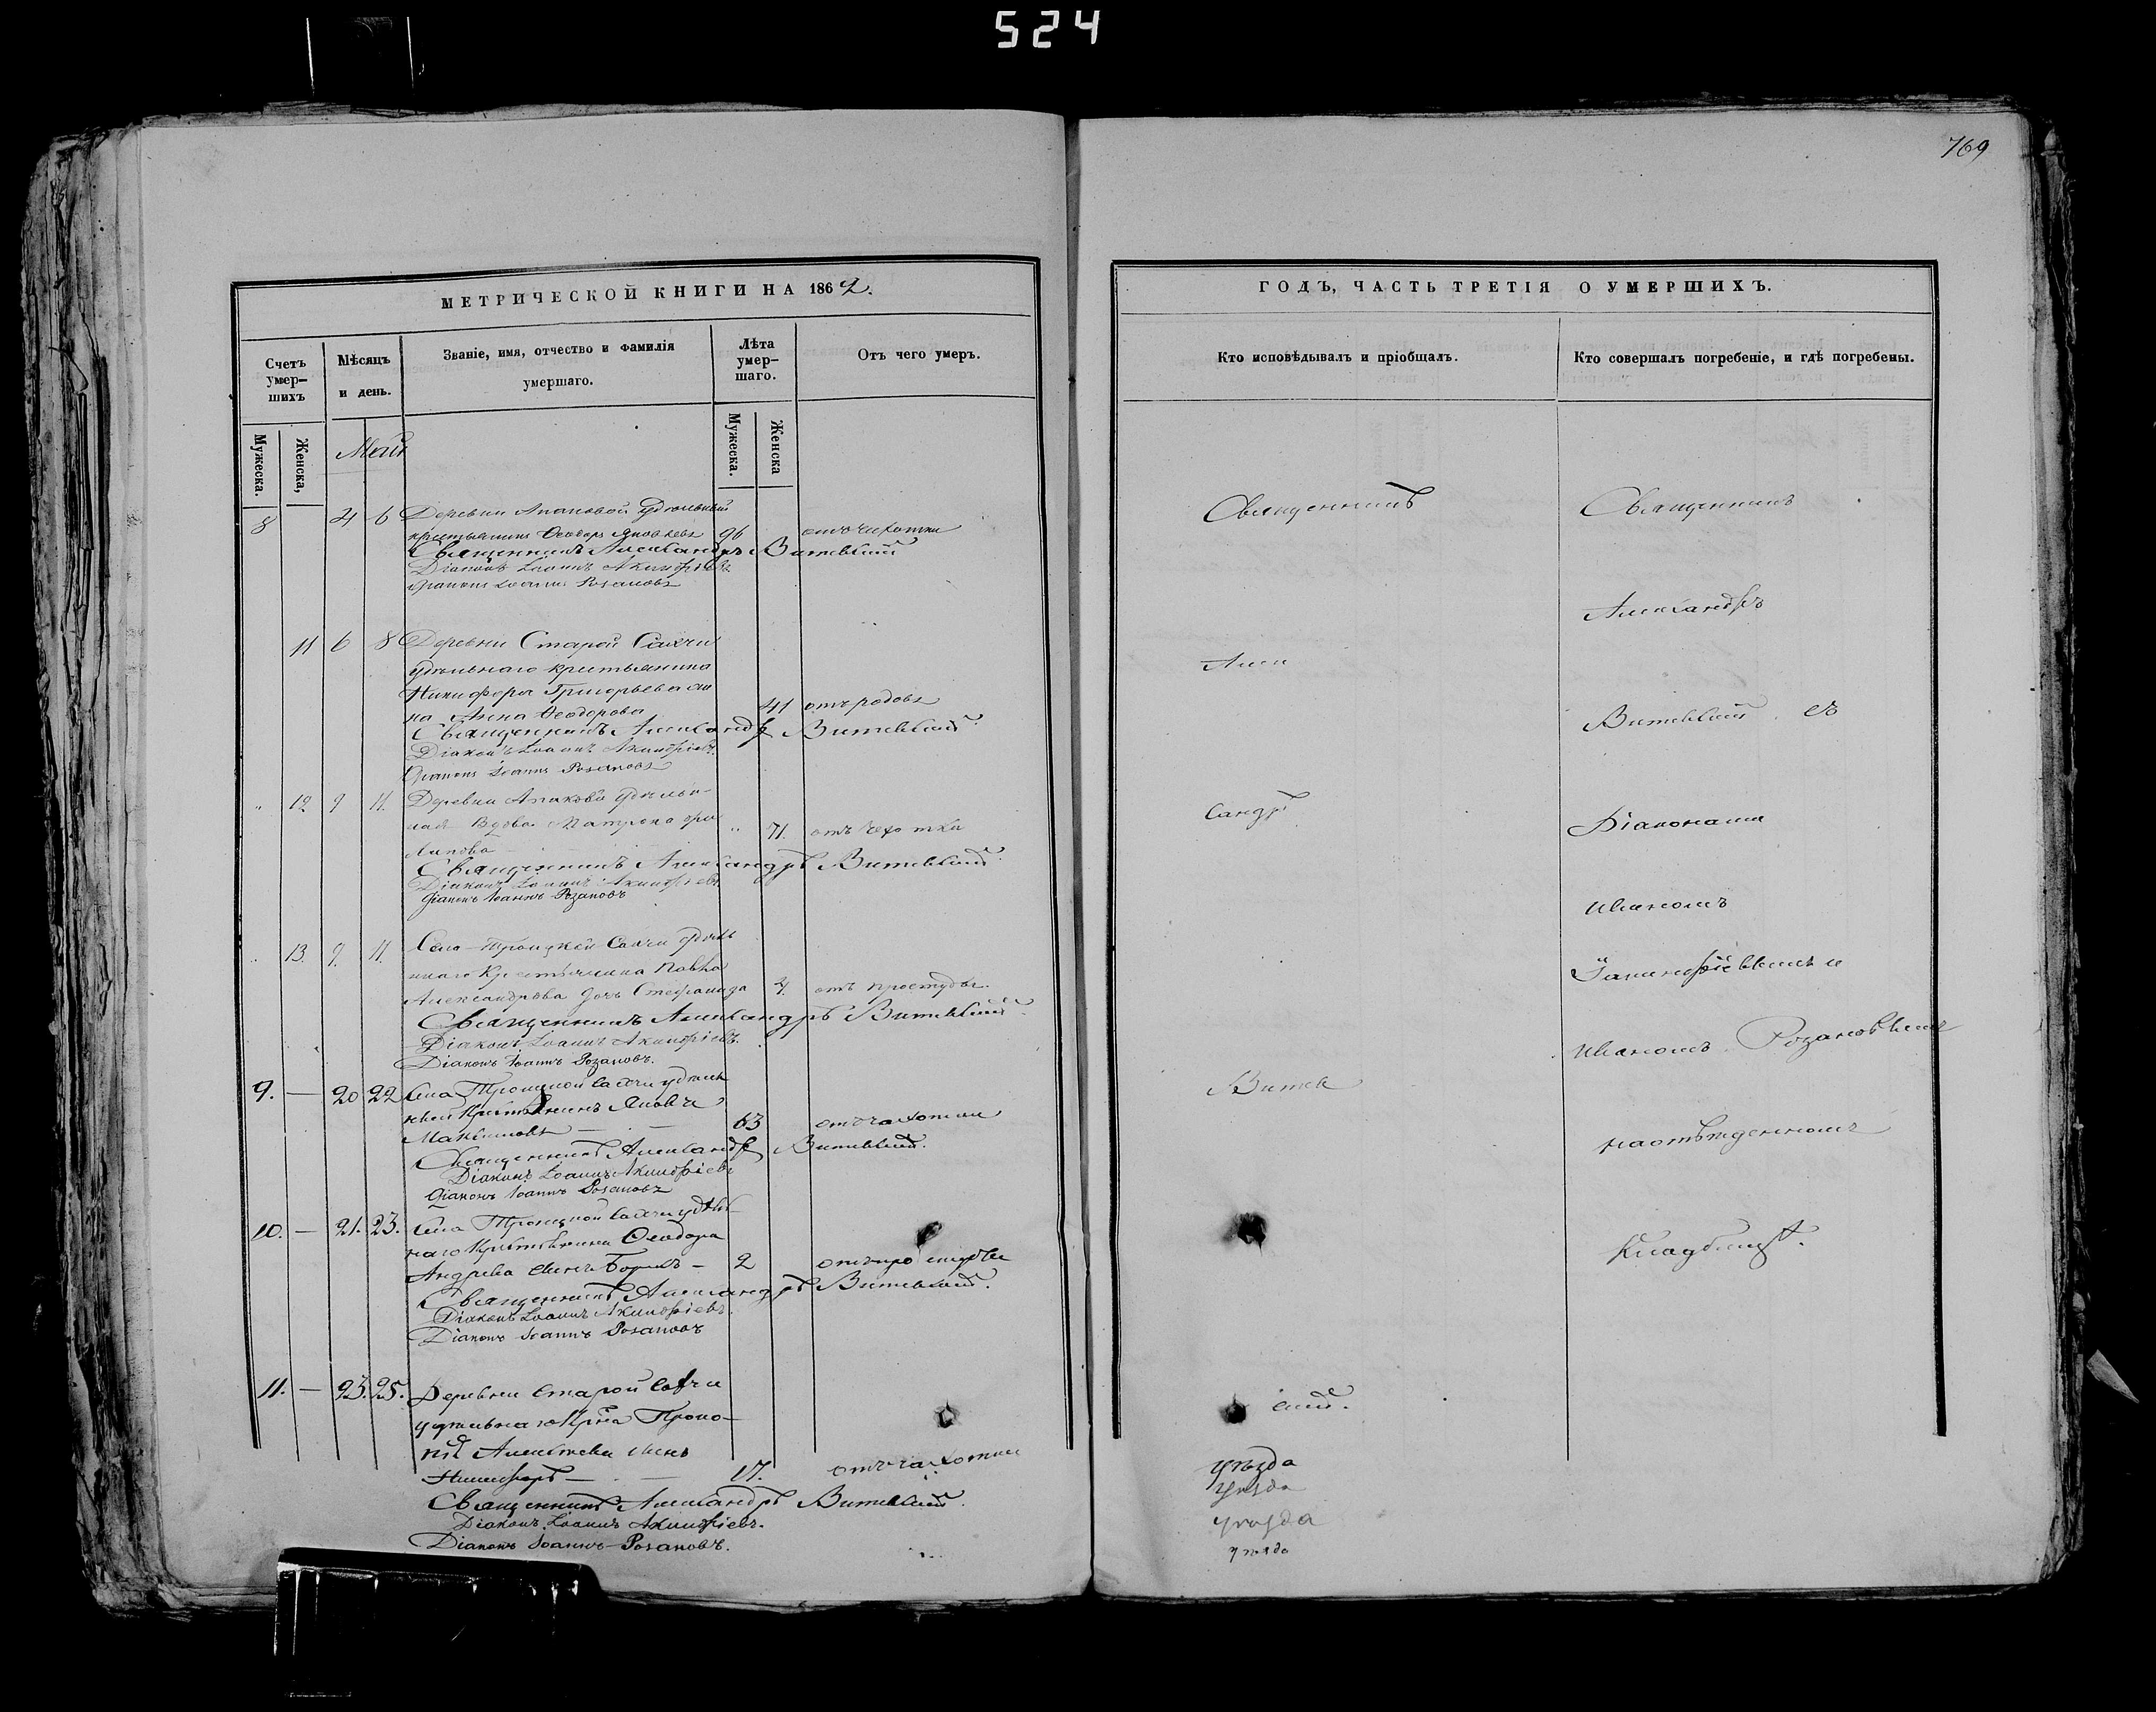 524
769
МЕТРИЧЕСКОЙ КНИГИ НА 1862.
Счетъ умер-шихъ
Мѣсяцъ и день.
Званіе, имя, отчество и фамилія умершаго.
Лѣта умер-шаго.
Отъ чего умеръ.
Мужеска.
Женска,
Май
Мужеска.
Женска
8 4 6 Деревни Апаковой удѣльный
крестьянинъ Ѳеодоръ Яковлевъ 96 отъ чахотки
Священникъ Александръ Витевскій
Діаконъ Іоаннъ Акинфіевъ
Діаконъ Іоаннъ Розановъ
11 6 8 Деревни Старой Сахчи
удѣльнаго крестьянина
Никифора Григорьева же
на Анна Ѳеодорова 41 отъ родовъ
Священникъ Александръ Витевскій
Діаконъ Іоаннъ Акинфіевъ
Діаконъ Іоаннъ Розановъ
" 12 9 11. Деревни Апаковой удѣль-
ная Вдова Матрона
" 71. отъ чахотки
Священникъ Александръ Витевскій
Діаконъ Іоаннъ Акинфіевъ
Діаконъ Іоаннъ Розановъ
13. 9. 11. Села Троицкой Сахчи удѣль
ннаго Крестьянина Павла
Александрова дочь Стефанида 4. отъ простуды.
Священникъ Александръ Витевскій
Діаконъ Іоаннъ Акинфіевъ.
Діаконъ Іоаннъ Розановъ.
9. — 20 22 Села Троицкой Сахчи удѣль
ный Крестьянинъ Яковъ
Максимовъ — 63 отъ чахотки
Священникъ Александръ Витевскій.
Діаконъ Іоаннъ Акинфіевъ
Діаконъ Іоаннъ Розановъ
10. — 21. 23. Села Троицкой Сахчи удѣль
наго Крестьянина Ѳеодора
Андреева сынъ Борисъ — 2 отъ простуды
Священникъ Александръ Витевскій.
Діаконъ Іоаннъ Акинфіевъ.
Діаконъ Іоаннъ Розановъ
11. — 23. 25. Деревни Старой Сахчи
удѣльнаго Кр̃на Проко-
пія Алексѣева сынъ
Никифоръ — 17. отъ чахотки
Священникъ Александръ Витевскій.
Діаконъ Іоаннъ Акинфіевъ.
Діаконъ Іоаннъ Розановъ.
ГОДЪ, ЧАСТЬ ТРЕТІЯ О УМЕРШИХЪ.
Кто исповѣдывалъ и пріобщалъ.
Кто совершалъ погребеніе, и гдѣ погребены.
Священникъ
Алек
сандръ
Витев
скій.
уѣзда
уѣзда
уѣзда
уѣзда
Священникъ
Александръ
Витевскій съ
Діаконами
Иваномъ
Іакинфіевымъ и
Иваномъ Розановымъ
на отведенномъ
Кладбищѣ.